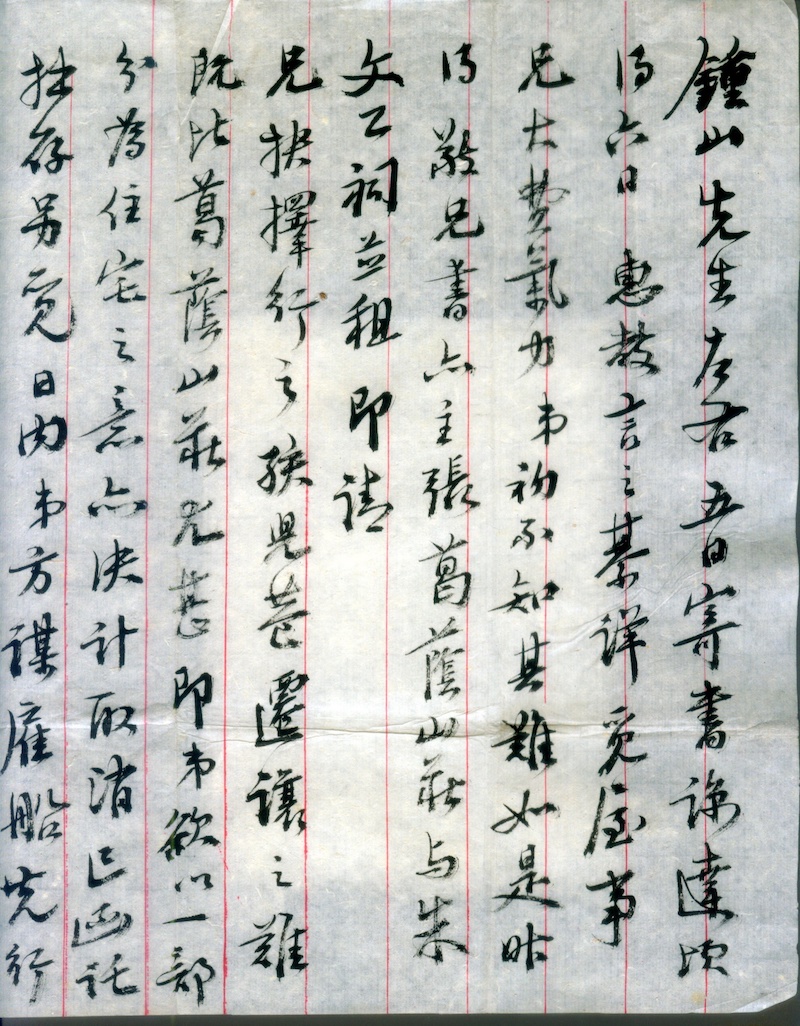 鍾山先生左右五日寄書諒達頃
得六日 惠教言之綦詳覓屋事
兄大費氣力弟初不知其難如是昨
得 敬兄書亦主張葛蔭山莊与朱
文公祠並租即請
兄抉擇行之 殊兒芒遷讓之難
既比葛蔭山莊尤甚即弟欲以一部
分為住宅之意亦決計取消已函託
抹存另覓日内弟方謀雇船先行